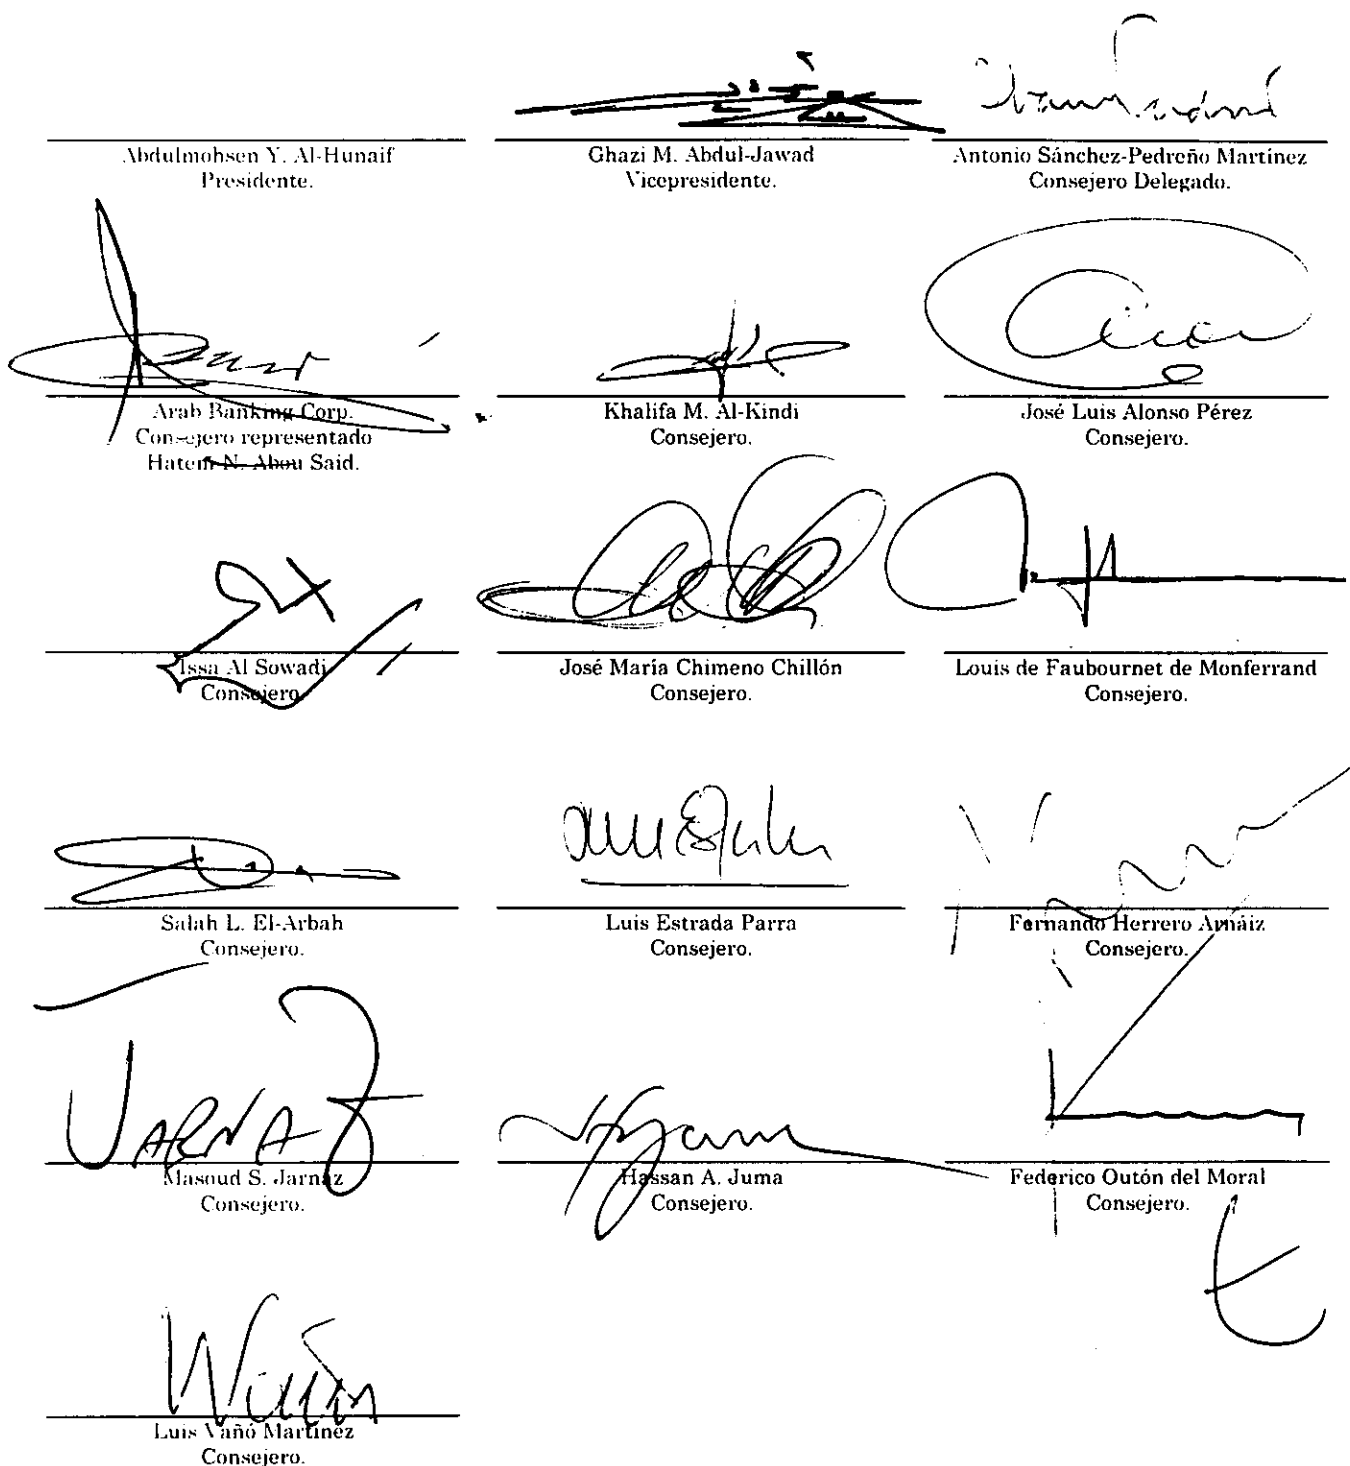 Abdulmohsen Y. Al-Hunaif
Presidente.
Ghazi M. Abdul-Jawad
Vicepresidente.
Antonio Sánchez-Pedreño Martínez
Consejero Delegado.
Arab Banking Corp.
Consejero representado
Hatem N. Abou Said.
Khalifa M. Al-Kindi
Consejero.
José Luis Alonso Pérez
Consejero.
Issa Al Sowadi
Consejero.
José María Chimeno Chillón
Consejero.
Louis de Faubournet de Monferrand
Consejero.
Salah L. El-Arbah
Consejero.
Luis Estrada Parra
Consejero.
Fernando Herrero Arnáiz
Consejero.
JARNAZ
Masoud S. Jarnaz
Consejero.
Hassan A. Juma
Consejero.
Federico Outón del Moral
Consejero.
Luis Vañó Martínez
Consejero.